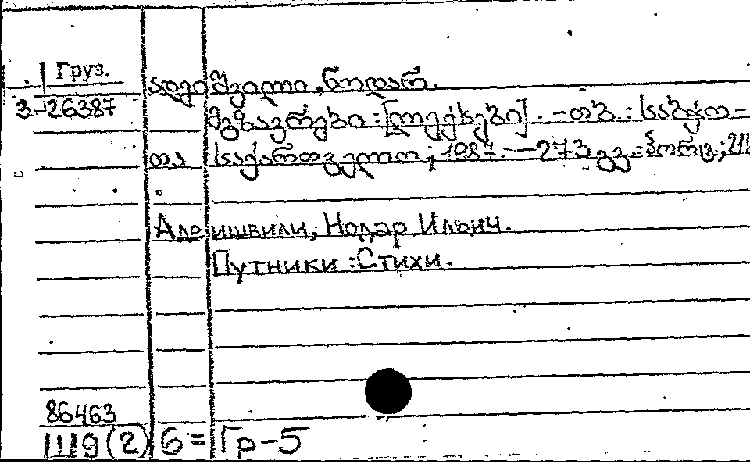 Груз.
ალეიშვილი, ნოდარ.
3-26387
მგზავრები : [ლექსები]. - თბ. : საბჭო-
თა საქართველო, 1987. - 273 გვ. : პორტ.; 21
Алеишвили, Нодар Ильич.
Путники : Стихи.
86463
Ш19(2)6=Гр-5